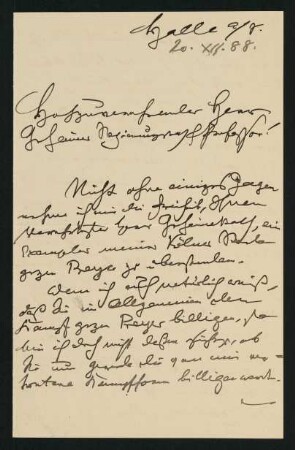 Halle a/S.
20. XII. 88.
Hochzuverehrender Herr
Geheimer Regierungsrath Professor!
Nicht ohne einiges Zagen
nehme ich mir die Freiheit, Ihnen
verehrtester Herr Geheimrath, ein
Exemplar meiner Kölner Rede
gegen Preyer zu übersenden.
Wenn ich auch natürlich weiß,
daß Sie im Allgemeinen den
Kampf gegen Preyer billigen, so
bin ich doch nicht dessen sicher, ob
Sie nun gerade die von mir
Kampfform billigen